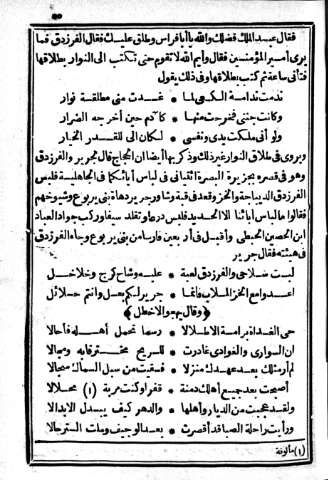 فقال عبد الملك فضلك والله يا أبا فراس وطلق عليك فقال الفرزدق فما
يرى أمير المؤمنين فقال وأيم الله لا تقوم حتى تكتب الى النوار بطلاقها
فتأنى ساعة ثم كتب بطلاقها وفى ذلك يقول
ندمت ندامة الكسعى لما * غدت منى مطلقة نوار
وكانت جنتى فخرجت منها * كآدم حين أخرجه الضرار
ولو أنى ملكت يدى ونفسى * لكان الى للقدر الخيار
ويروى فى طلاق النوار غير ذلك وذكر بها أيضا ان الحجاج قال لجرير والفرزدق
وهو فى قصره بجزيرة البصرة ائتيانى فى لباس آبائكما فى الجاهلية فلبس
الفرزدق الديباجة والخز وقعد فى قبة وشاور جرير دهاة بنى يربوع وشيوخهم
فقالوا ما لباس آبائنا الا الحديد فلبس درعا وتقلد سيفا وركب جوادا لعباد
ابن الحصين الحبطى وأقبل فى أربعين فارسا من بنى يربوع وجاء الفرزدق
فى هيئته فقال جرير
لبست سلاحى والفرزدق لعبة * عليه وشاح كرج وخلاخل
اعدوا مع الخز الملاب فانما * جرير لكم بعل وانتم حلائل
﴿وقال يهجو الاخطل﴾
حى الغداة برامة الاطلالا * رسما تحمل أهله فأحالا
ان السوارى والغوادى غادرت * للريح مخترقا به ومجالا
لم أر مثلك بعد عهدك منزلا * فسقيت من سيل السماك سجالا
أصبحت بعد جميع أهلك دمنة * قفرا وكنت مربة (١) محلالا
ولقد عجبت من الديار وأهلها * والدهر كيف يبدل الابدالا
ورأيت راحلة الصبا قد أقصرت * بعد الوجيف وملت الترحالا
(١) مألوفة